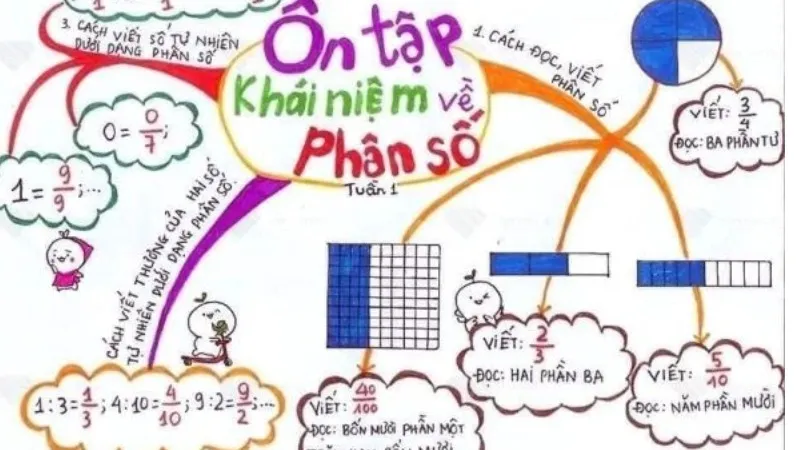 Ôn tập
Khái niệm về
Phân số
Tuần 1
1. CÁCH ĐỌC, VIẾT
PHÂN SỐ
VIẾT: 3/4
ĐỌC: BA PHẦN TƯ
VIẾT: 5/10
ĐỌC: NĂM PHẦN MƯỜI
VIẾT: 2/3
ĐỌC: HAI PHẦN BA
VIẾT: 40/100
ĐỌC: BỐN MƯƠI PHẦN MỘT
CÁCH VIẾT THƯƠNG CỦA HAI SỐ
TỰ NHIÊN DƯỚI DẠNG PHÂN SỐ
1:3=1/3; 4:10=4/10; 9:2=9/2;...
3. CÁCH VIẾT SỐ TỰ NHIÊN
DƯỚI DẠNG PHÂN SỐ
0=0/7;
1=9/9;...